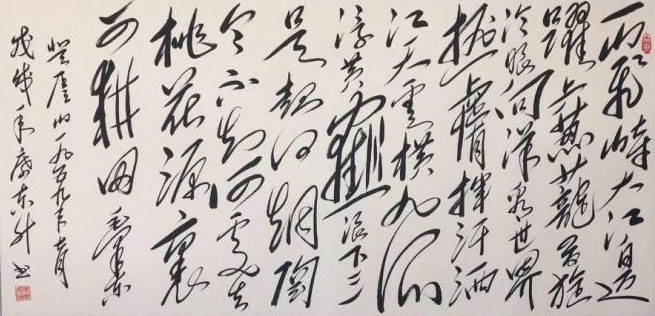 一山飞峙大江邊
躍上葱蘢四百旋
冷眼向洋看世界
热膚揮汗洒
江天雲横九派
浮黄鶴浪下三
吴起白烟陶
令不知何處去
桃花源裏
可耕田 毛澤東
登廬山一九五九年七月
戊戌年东升书